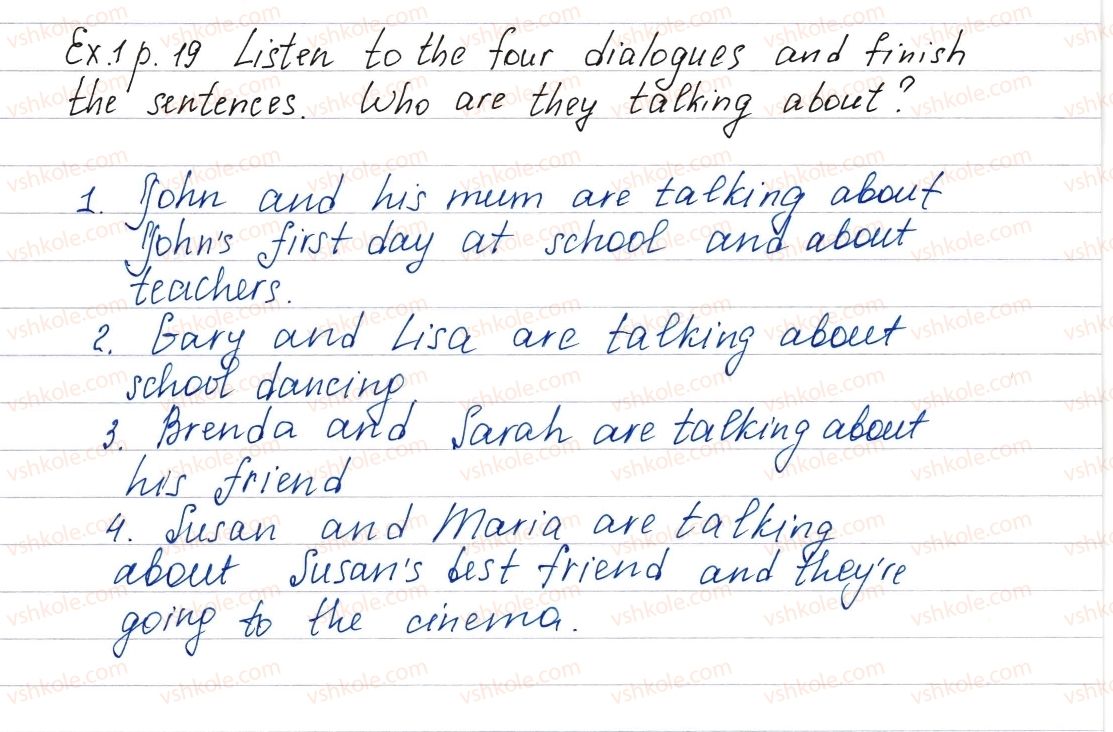 Ex.1 p. 19 Listen to the four dialogues and finish
the sentences. Who are they talking about?
1. John and his mum are talking about
John's first day at school and about
teachers.
2. Gary and Lisa are talking about
school dancing
3. Brenda and Sarah are talking about
his friend
4. Susan and Maria are talking
about Susan's best friend and they're
going to the cinema.
vshkole.com